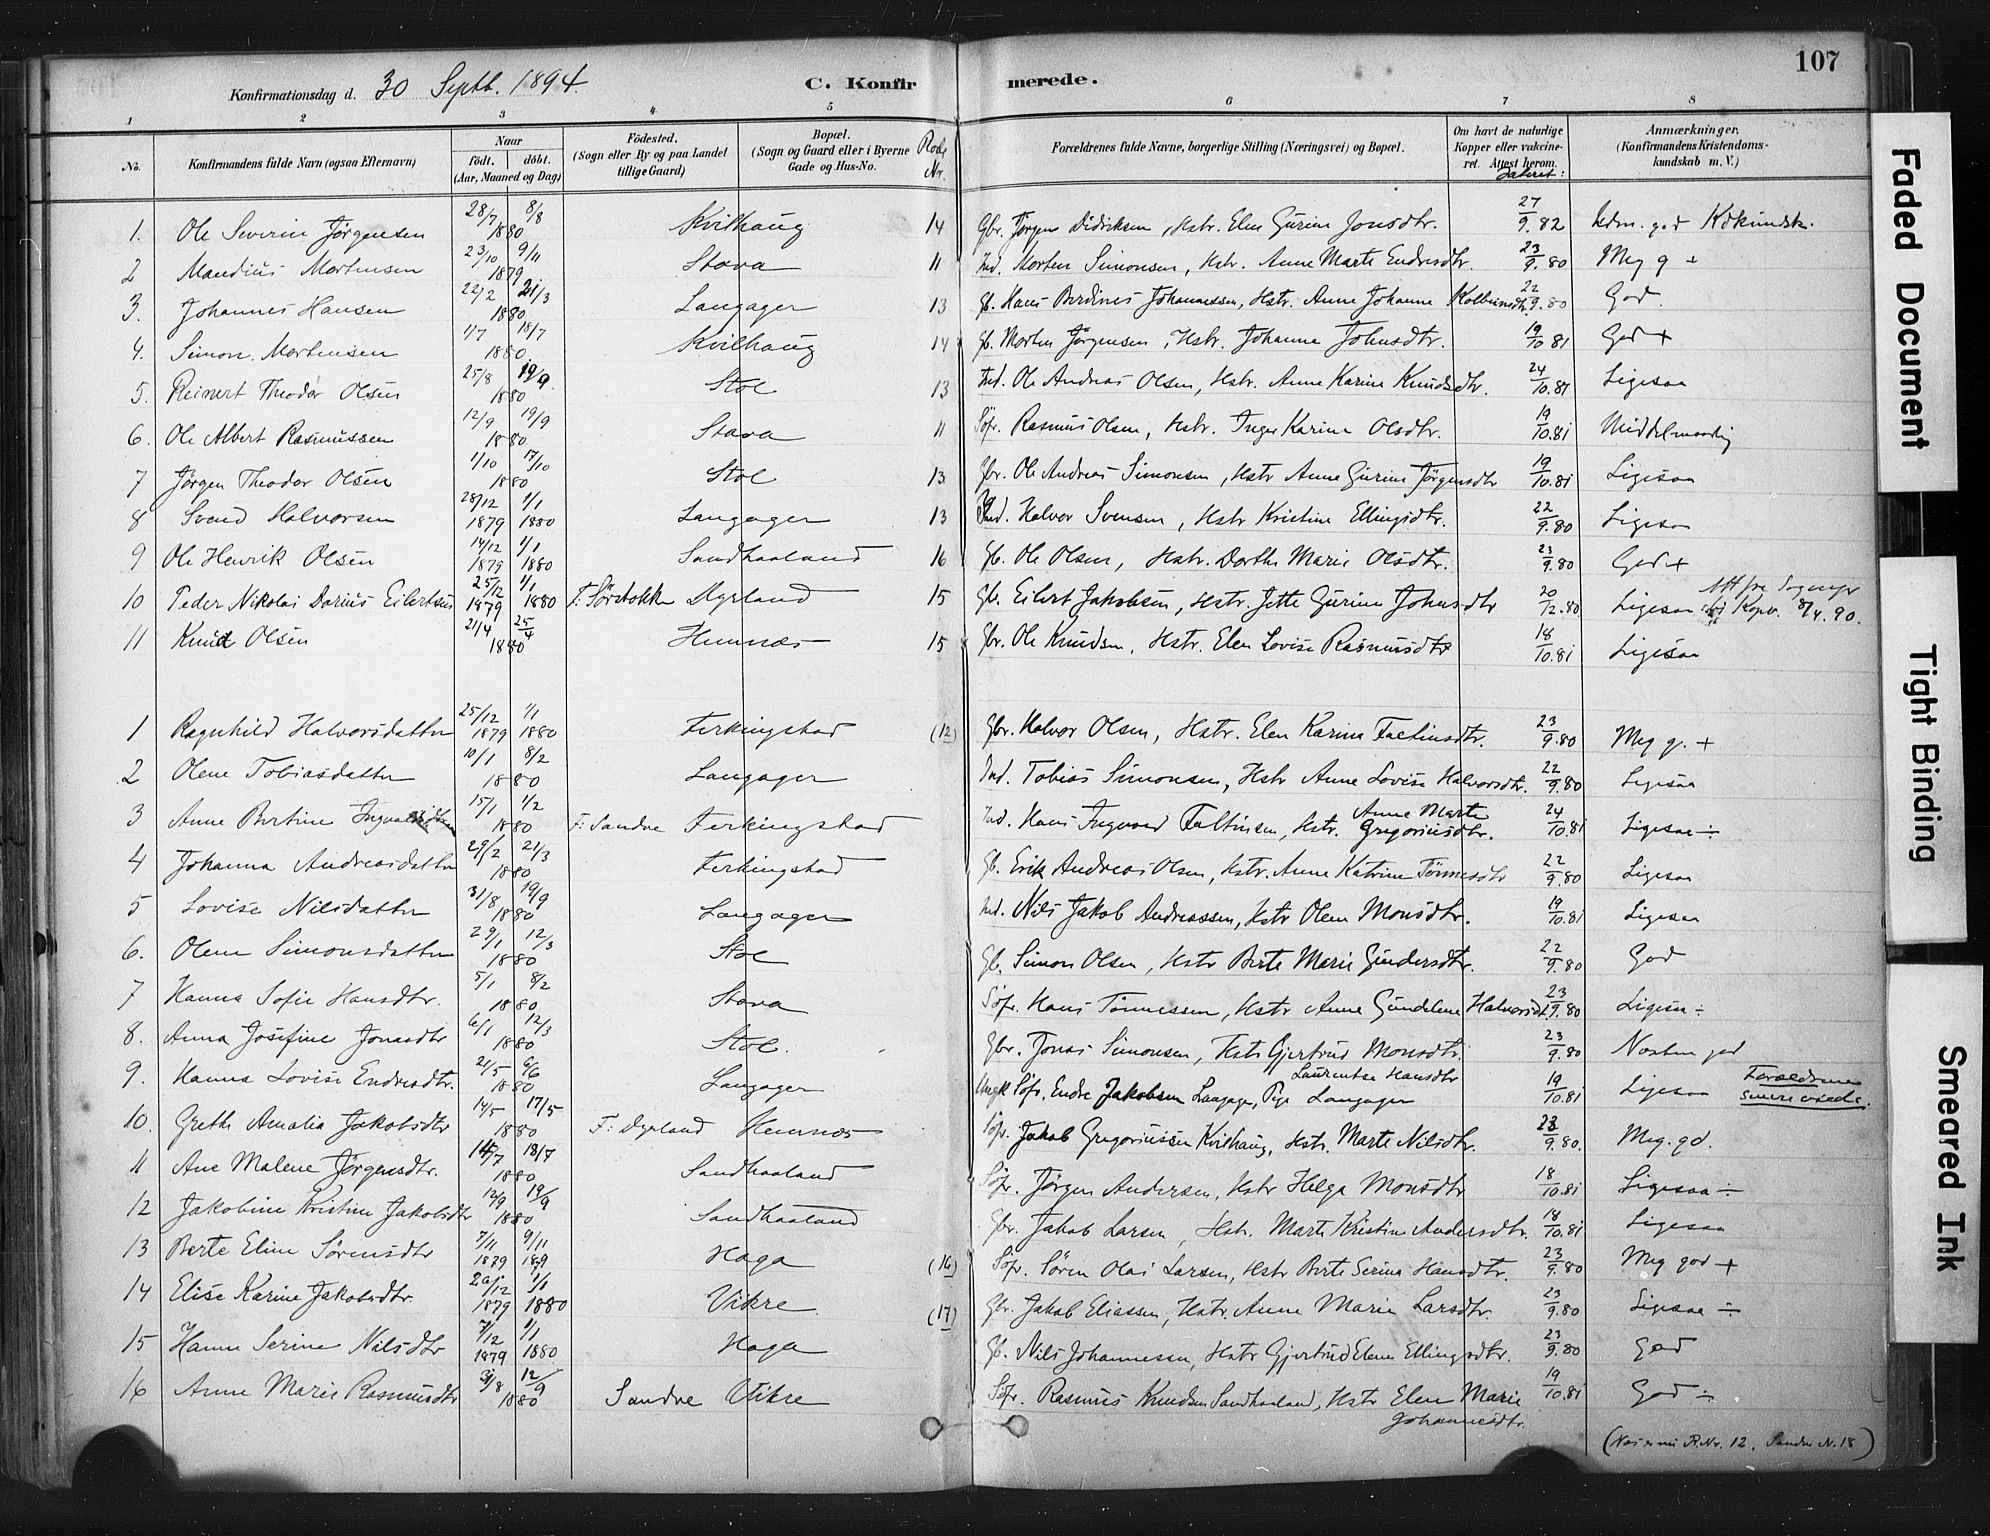 107
Konfirmationsdag d. 30 Septb. 1894. C. Konfirmerede.
1 2 3 4 5 6 7 8
No. Konfirmandens fulde Navn (ogsaa Efternavn) Naar födt. döbt. (Aar, Maaned og Dag) Födested. (Sogn eller By og paa Landet tillige Gaard) Bopæl. (Sogn og Gaard eller i Byerne Gade og Hus-No. Rode Nr. Forældrenes fulde Navne, borgerlige Stilling (Næringsvei) og Bopæl. Om havt de naturlige Kopper eller vakcineret. Attest herom. Dateret: Anmærkninger. (Konfirmandens Kristendomskundskab m. V.)
1. Ole Severin Jørgensen 28/7 8/8 1880 Kvilhaug 14 Gbr. Jørgen Didriksen, Hstr. Elen Gurine Jonsdtr. 27/9.82 Udm. god Kdkundsk.
2 Mandius Mortensen 23/10 9/11 1879 Stava 11 Ind. Morten Simonsen, Hstr. Anne Marte Endresdtr. 23/9.80 Meg g +
3. Johannes Hansen 22/2 21/3 1880 Langager 13 Gb. Hans Berdines Johannessen, Hstr. Anne Johanne Kolbeinsdtr. 22/9.80 God.
4. Simon Mortensen 1/7 18/7 1880 Kvilhaug 14 Gb. Morten Jørgensen, Hstr. Johanne Johnsdtr. 19/10 81 God +
5. Reinert Theodor Olsen 25/8 19/9. 1880 Stol 13 Ind. Ole Andreas Olsen, Hstr. Anne Karine Knudsdtr. 24/10.81 Ligesaa
6. Ole Albert Rasmussen 12/9 19/9 1880 Stava 11 Söfr. Rasmus Olsen, Hstr. Inger Karine Olsdtr. 19/10.81 Middelmaadig
7 Jørgen Theodor Olsen 1/10 17/10 1880 Stol 13 Gbr. Ole Andreas Simonsen, Hstr Anne Gurine Jörgensdtr 19/10.81 Ligesaa
8 Svend Halvorsen 28/12 1879 1/1 1880 Langager 13 Ind. Halvor Svensen, Hstr Kristine Ellingsdtr. 22/9.80 Ligesaa
9 Ole Henrik Olsen 14/12 1879 1/1 1880 Sandhaaland 16 Gb. Ole Olsen, Hstr. Dorthe Marie Olsdtr. 23/9.80 God +
10 Peder Nikolai Darius Eilertsen 25/12 1879 1/1 1880 F. Sörstokke Dyrland 15 Gb. Eilert Jakobsen, Hstr. Jette Gurine Johnsdtr 20/12.80 Ligesaa Att fra Sognepr Kopv. 8/4.90.
11 Knud Olsen 21/4 25/4 1880 Hemnæs 15 Gbr. Ole Knudsen, Hstr. Elen Lovise Rasmusdtr 18/10.81 Ligesaa
1 Ragnhild Halvorsdatter 25/12 1879 1/1 1880 Ferkingstad (12) Gbr. Halvor Olsen, Hstr. Elen Karine Faltinsdtr. 23/9.80 Meg g. +
2 Olene Tobiasdatter 10/1 8/2 1880 Langager Ind. Tobias Simonsen, Hstr Anne Lovise Halvorsdtr. 22/9.80 Ligesaa
3 Anne Bertine Ingvaldsdtr 15/1 1/2 1880 F: Sandve Ferkingstad Ind. Hans Ingvard Faltinsen, Hstr. Anne Marte Gregoriusdtr. 24/10.81 Ligesaa ÷
4 Johanna Andreasdatter 29/2 21/3 1880 Ferkingstad Gb. Erik Andreas Olsen, Hstr. Anne Katrine Tönnesdtr 22/9.80 Ligesaa
5 Lovise Nilsdatter 31/8 19/9 1880 Langager Ind. Nils Jakob Andreassen, Hstr Olene Monsdtr. 19/10.81 Ligesaa
6. Olene Simonsdatter 29/1 12/3 1880 Stol Gb. Simon Olsen, Hstr Berte Marie Gundersdtr. 22/9.80 God
7 Hanna Sofie Hansdtr. 5/1 8/2 1880 Stava Söfr. Hans Tönnessen, Hstr Anne Gundelene Halvorsdtr 23/9.80 Ligesaa ÷
8. Anna Josefine Jonasdtr 6/1 12/3 1880 Stol. Gbr. Jonas Simonsen, Hstr Gjertrud Monsdtr. 23/9.80 Næsten god
9. Hanna Lovise Endresdtr. 21/5 6/6 1880 Langager Ungk Söfr. Endre Jakobsen Langager, Pige Laurentse Hansdtr Langager 19/10.81 Ligesaa Forældrene senere viede.
10. Grethe Amalia Jakobsdtr 14/5 17/5 1880 F: Dyrland Hemnæs Söfr. Jakob Gregoriussen Kvilhaug, Hstr. Marte Nilsdtr. 23/9.80. Meg. gd.
11 Ane Malene Jørgensdtr. 14/7 18/7 1880 Sandhaaland Söfr. Jörgen Andersen, Hstr Helga Monsdtr 18/10.81 Ligesaa ÷
12 Jakobine Kristine Jakobsdtr 12/9 19/9 1880 Sandhaaland Gbr. Jakob Larsen, Hstr. Marte Kristine Andersdtr. 18/10.81 Ligesaa
13 Berte Eline Sörensdtr 7/11 1879 9/11 1879 Haga (16) Söfr. Sören Olai Larsen, Hstr Berte Serina Hansdtr. 23/9.80 Meg god +
14 Elise Karine Jakobsdtr. 26/12 1879 1/1 1880 Vikre (17) Gbr. Jakob Eliassen, Hstr. Anne Marie Larsdtr. 23/9.80 Ligesaa ÷
15 Hanne Serine Nilsdtr 7/12 1879 1/1 1880 Haga Gb. Nils Johannessen, Hstr Gjertrud Elene Ellingsdtr. 23/9.80 God
16 Anne Marie Rasmusdtr 31/8 12/9 1880 Sandve Vikre Söfr. Rasmus Knudsen Sandhaaland, Hstr Elen Marie Johannesdtr. 19/10.81 God ÷
R.Nr. 12, Sandve N. 18)
Faded Document
Tight Binding
Smeared Ink